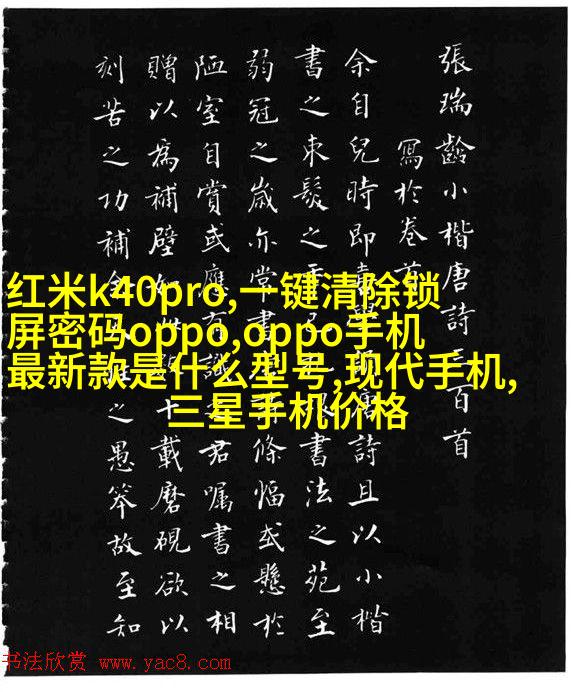 張瑞齡小楷唐詩三百首
寫於卷首
余自兒時即唐詩且以小楷
書之束髮之書法之苑至
弱冠之歲亦常書條幅或懸於
陋室自賞或應有識君囑書之相
贈以為補壁十載磨硯欲以
刻苦之功補之愚笨故至知
红米k40pro,一键清除锁
屏密码oppo,oppo手机
最新款是什么型号,现代手机,
三星手机价格
书法欣赏 www.yac8.com